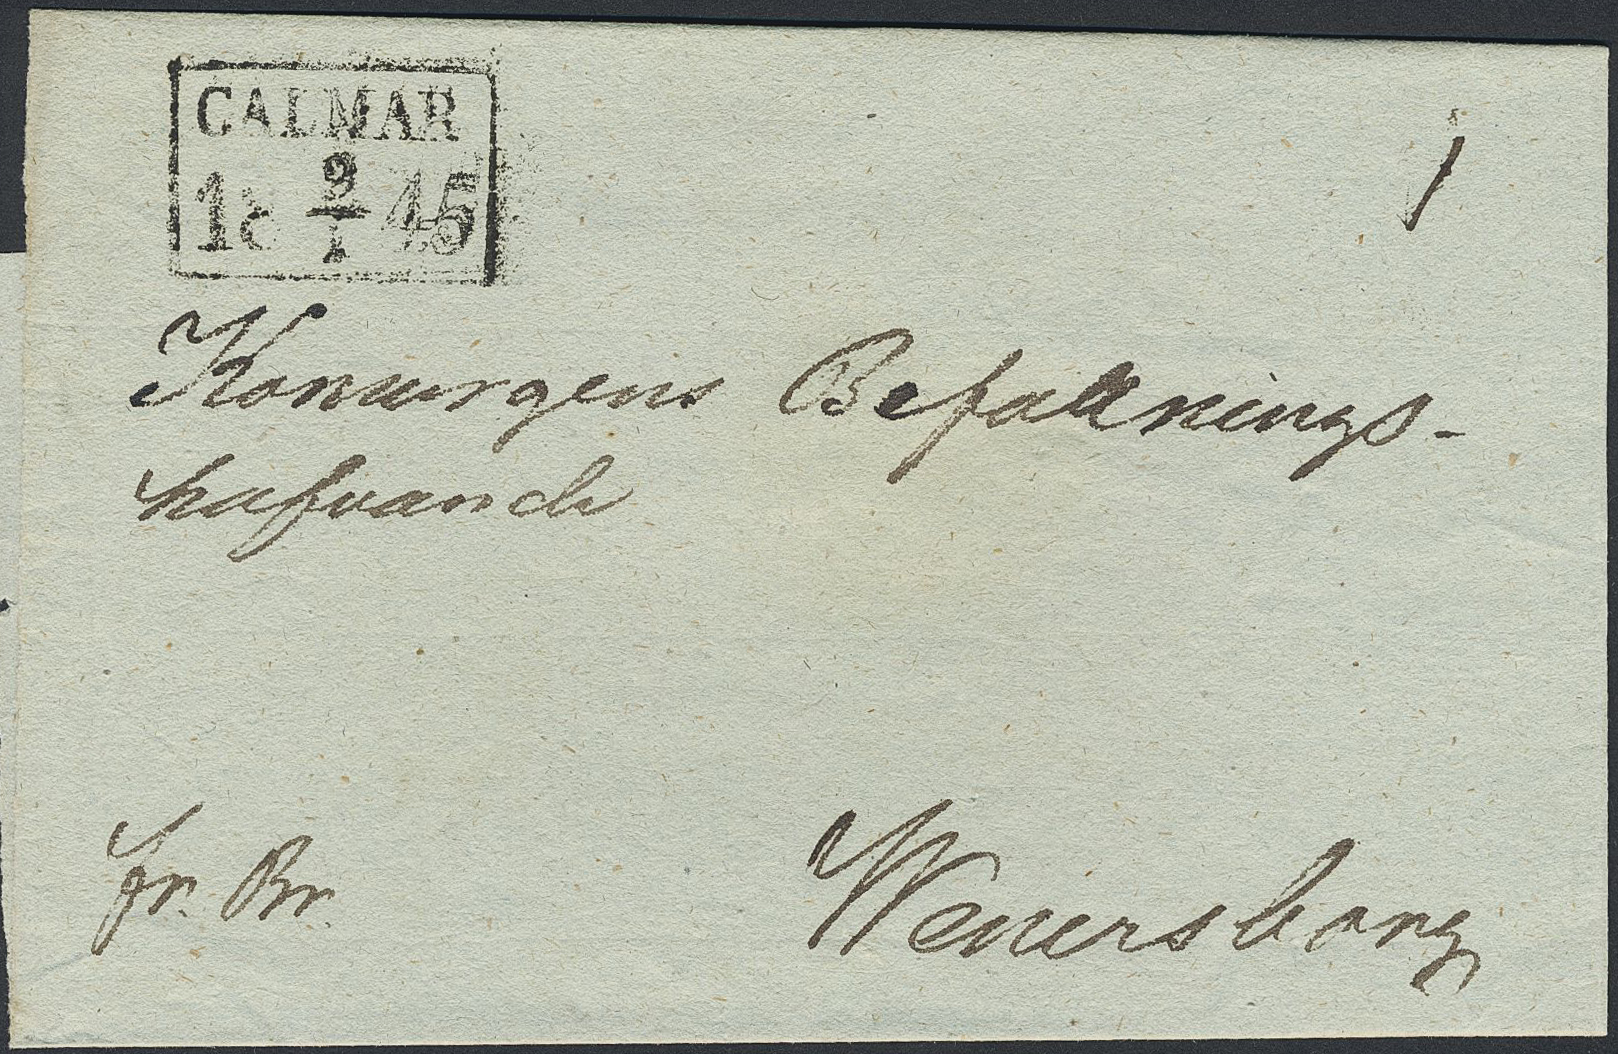 CALMAR
18 2/1 45
1
Konungens Befallnings-
hafvande
fr. Br.
Wenersborg